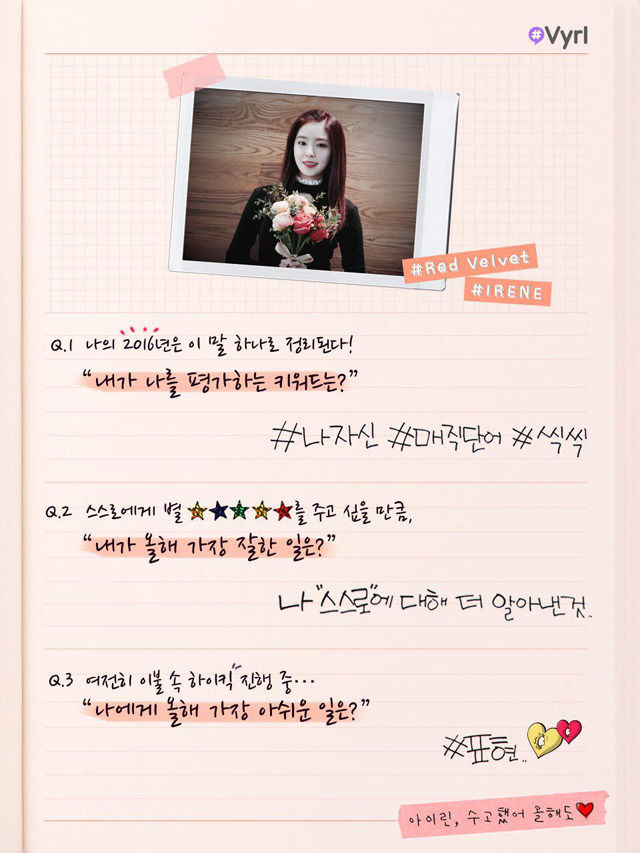 #Vyrl
#Red Velvet
#IRENE
Q.1 나의 2016년은 이 말 하나로 정리된다!
“내가 나를 평가하는 키워드는?”
#나자신 #매직단어 #씩씩
Q.2 스스로에게 별 ★★★★★를 주고 싶을 만큼,
“내가 올해 가장 잘한 일은?”
나 "스스로"에 대해 더 알아낸것.
Q.3 여전히 이불 속 하이킥 진행 중...
“나에게 올해 가장 아쉬운 일은?”
#표현..
아이린, 수고했어 올해도❤